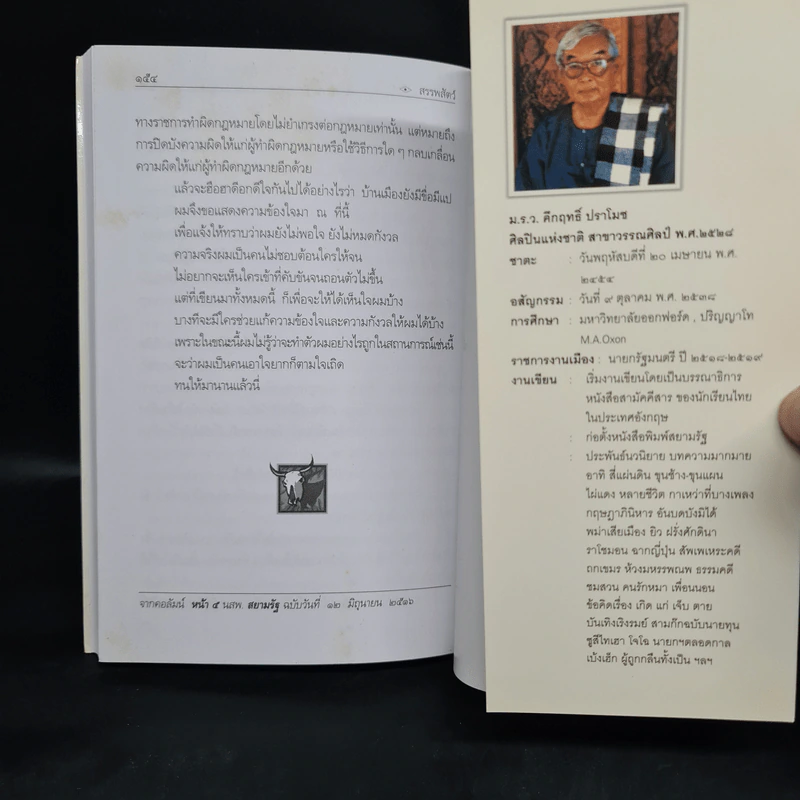 ๑๕๔
สรรพสัตว์
ทางราชการทำผิดกฎหมายโดยไม่ยำเกรงต่อกฎหมายเท่านั้น แต่หมายถึง
การปิดบังความผิดให้แก่ผู้ทำผิดกฎหมายหรือใช้วิธีการใด ๆ กลบเกลื่อน
ความผิดให้แก่ผู้ทำผิดกฎหมายอีกด้วย
แล้วจะฮือฮาดีอกดีใจกันไปได้อย่างไรว่า บ้านเมืองยังมีขื่อมีแป
ผมจึงขอแสดงความข้องใจมา ณ ที่นี้
เพื่อแจ้งให้ทราบว่าผมยังไม่พอใจ ยังไม่หมดกังวล
ความจริงผมเป็นคนไม่ชอบต้อนใครให้จน
ไม่อยากจะเห็นใครเข้าที่คับขันจนถอนตัวไม่ขึ้น
แต่ที่เขียนมาทั้งหมดนี้ ก็เพื่อจะให้ได้เห็นใจผมบ้าง
บางทีจะมีใครช่วยแก้ความข้องใจและความกังวลให้ผมได้บ้าง
เพราะในขณะนี้ผมไม่รู้ว่าจะทำตัวผมอย่างไรถูกในสถานการณ์เช่นนี้
จะว่าผมเป็นคนเอาใจยากก็ตามใจเถิด
ทนให้มานานแล้วนี่
จากคอลัมน์ หน้า ๕ นสพ. สยามรัฐ ฉบับวันที่ ๑๒ มิถุนายน ๒๕๑๖
ม.ร.ว. คึกฤทธิ์ ปราโมช
ศิลปินแห่งชาติ สาขาวรรณศิลป์ พ.ศ.๒๕๒๘
ชาตะ : วันพฤหัสบดีที่ ๒๐ เมษายน พ.ศ.
๒๔๕๔
อสัญกรรม : วันที่ ๙ ตุลาคม พ.ศ. ๒๕๓๘
การศึกษา : มหาวิทยาลัยออกฟอร์ด , ปริญญาโท
M.A.Oxon
ราชการงานเมือง : นายกรัฐมนตรี ปี ๒๕๑๘-๒๕๑๙
งานเขียน : เริ่มงานเขียนโดยเป็นบรรณาธิการ
หนังสือสามัคคีสาร ของนักเรียนไทย
ในประเทศอังกฤษ
: ก่อตั้งหนังสือพิมพ์สยามรัฐ
: ประพันธ์นวนิยาย บทความมากมาย
อาทิ สี่แผ่นดิน ขุนช้าง-ขุนแผน
ไผ่แดง หลายชีวิต กาเหว่าที่บางเพลง
กฤษฎาภินิหาร อันบดบังมิได้
พม่าเสียเมือง ยิว ฝรั่งศักดินา
ราโชมอน ฉากญี่ปุ่น สัพเพเหระคดี
ถกเขมร ห้วงมหรรพณพ ธรรมคดี
ชมสวน คนรักหมา เพื่อนนอน
ข้อคิดเรื่อง เกิด แก่ เจ็บ ตาย
บันเทิงเริงรมย์ สามก๊กฉบับนายทุน
ซูสีไทเฮา โจโฉ นายกฯตลอดกาล
เบ้งเฮ็ก ผู้ถูกกลืนทั้งเป็น ฯลฯ